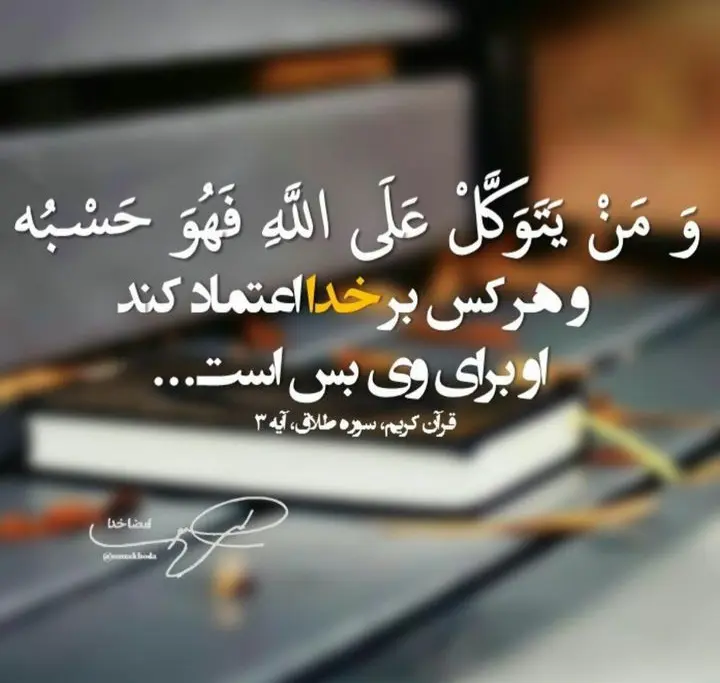 وَ مَنْ يَتَوَكَّلْ عَلَى اللَّهِ فَهُوَ حَسْبُه
و هر کس بر خدا اعتماد کند
او برای وی بس است...
قرآن کریم، سوره طلاق، آیه ۳
امضا خدا